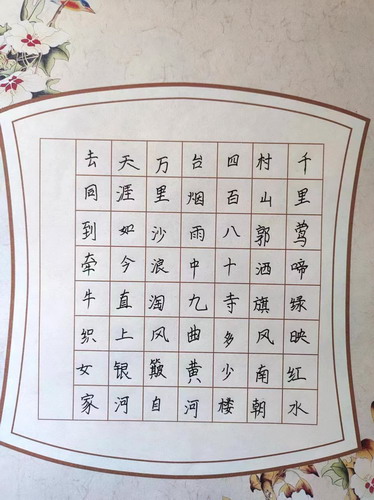 千里莺啼绿映红水
村山郭酒旗风南朝
四百八十寺多少楼
台烟雨中九曲黄河
万里沙浪淘风簸自
天涯如今直上银河
去同到牵牛织女家